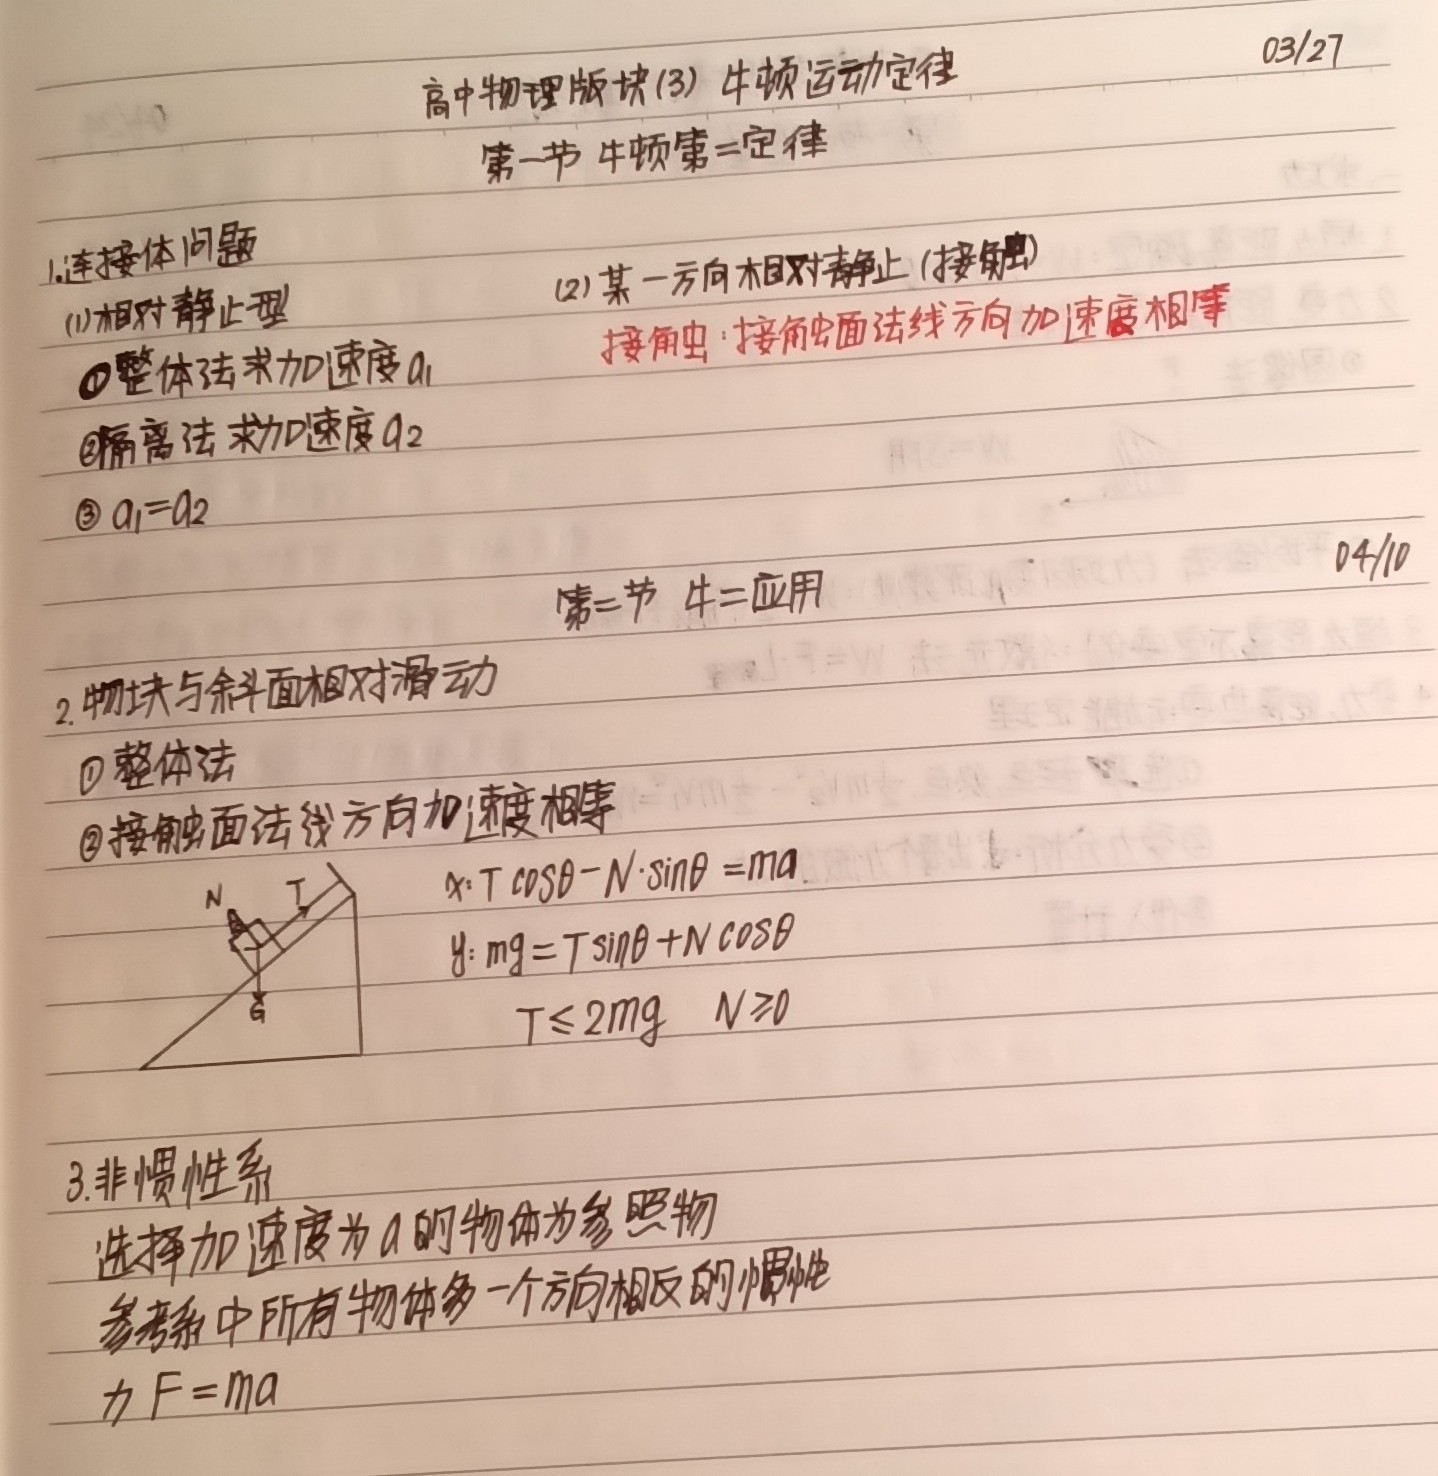 03/27
高中物理版块(3) 牛顿运动定律
第一节 牛顿第二定律
1.连接体问题
(1)相对静止型
①整体法求加速度a₁
②隔离法求加速度a₂
③a₁=a₂
(2)某一方向相对静止(接触)
接触:接触面法线方向加速度相等
04/10
第二节 牛二应用
2.物块与斜面相对滑动
①整体法
②接触面法线方向加速度相等
N T
G
x: T cosθ-N·sinθ=ma
y: mg=Tsinθ+N cosθ
T≤2mg N≥0
3.非惯性系
选择加速度为a的物体为参照物
参考系中所有物体多一个方向相反的惯性
力 F=ma